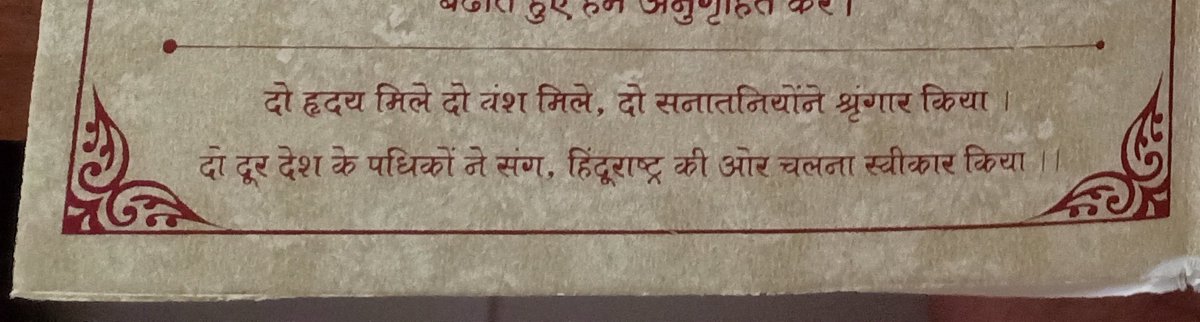 बढाते हुए हमें अनुगृहित करें।
दो हृदय मिले दो वंश मिले, दो सनातनियोंने श्रृंगार किया ।
दो दूर देश के पथिकों ने संग, हिंदूराष्ट्र की ओर चलना स्वीकार किया ।।